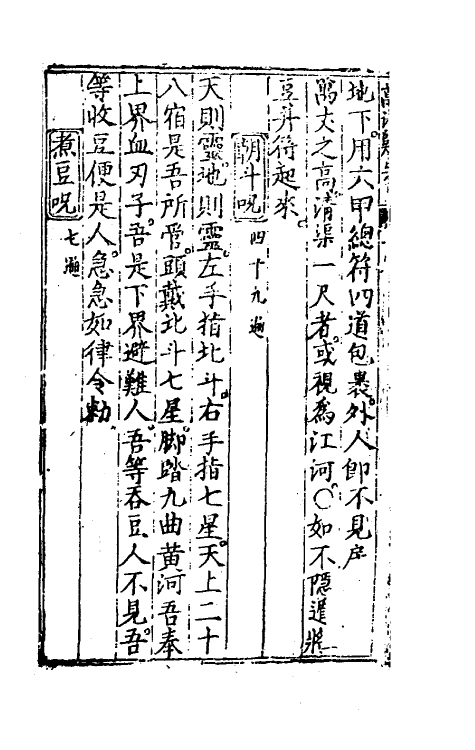 地下。用六甲總符四道包裹。外人卽不見戶
萬丈之高。清渠一尺者。或視爲江河。〇如不隱遁將
豆并符起來。
朝斗呪 四十九遍
天則靈。地則靈。左手指北斗。右手指七星。天上二十
八宿是吾所管。頭戴北斗七星。脚踏九曲黃河吾奉
上界血刃子。吾是下界避難人。吾等吞豆人不見吾。
等收豆便是人。急急如律令勅
煮豆呪 七遍